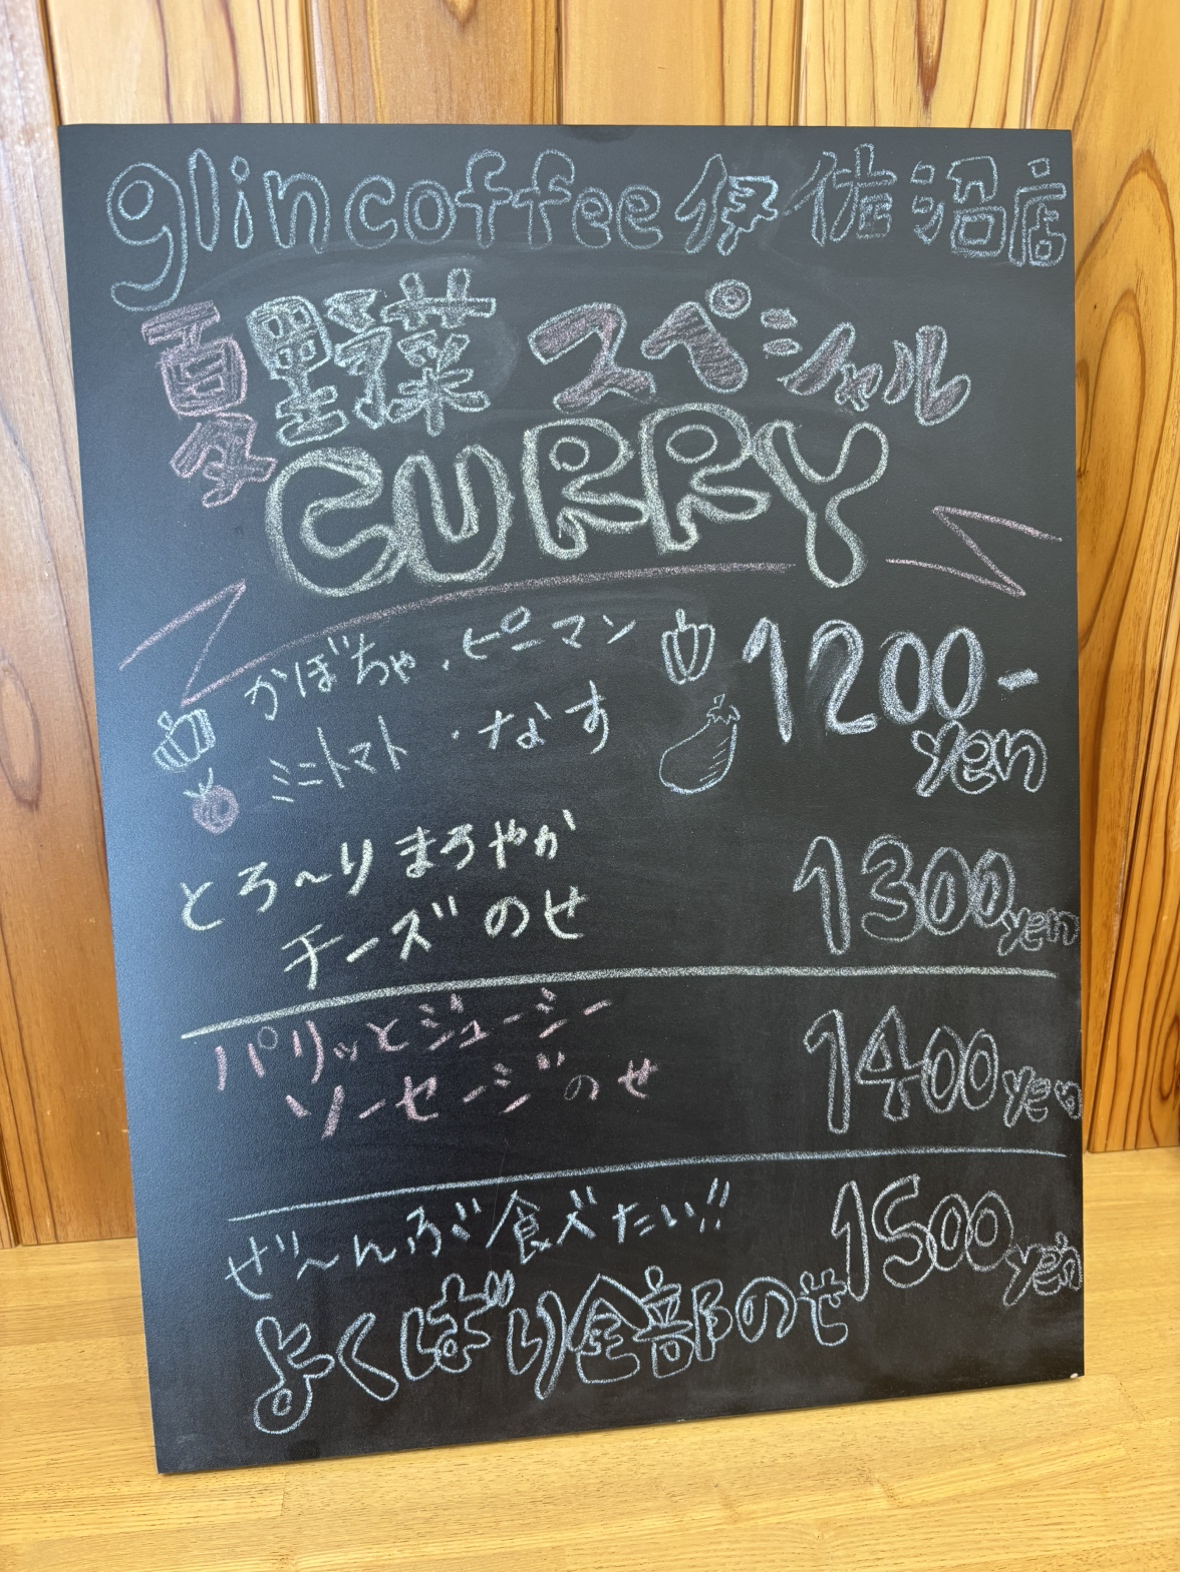 glin coffee 伊佐沼店
夏野菜スペシャル
CURRY
かぼちゃ・ピーマン
ミニトマト・なす
1200-
yen
とろ〜りまろやか
チーズのせ
1300yen
パリッとジューシー
ソーセージのせ
1400yen
ぜ〜んぶ食べたい!!
よくばり全部のせ
1500yen